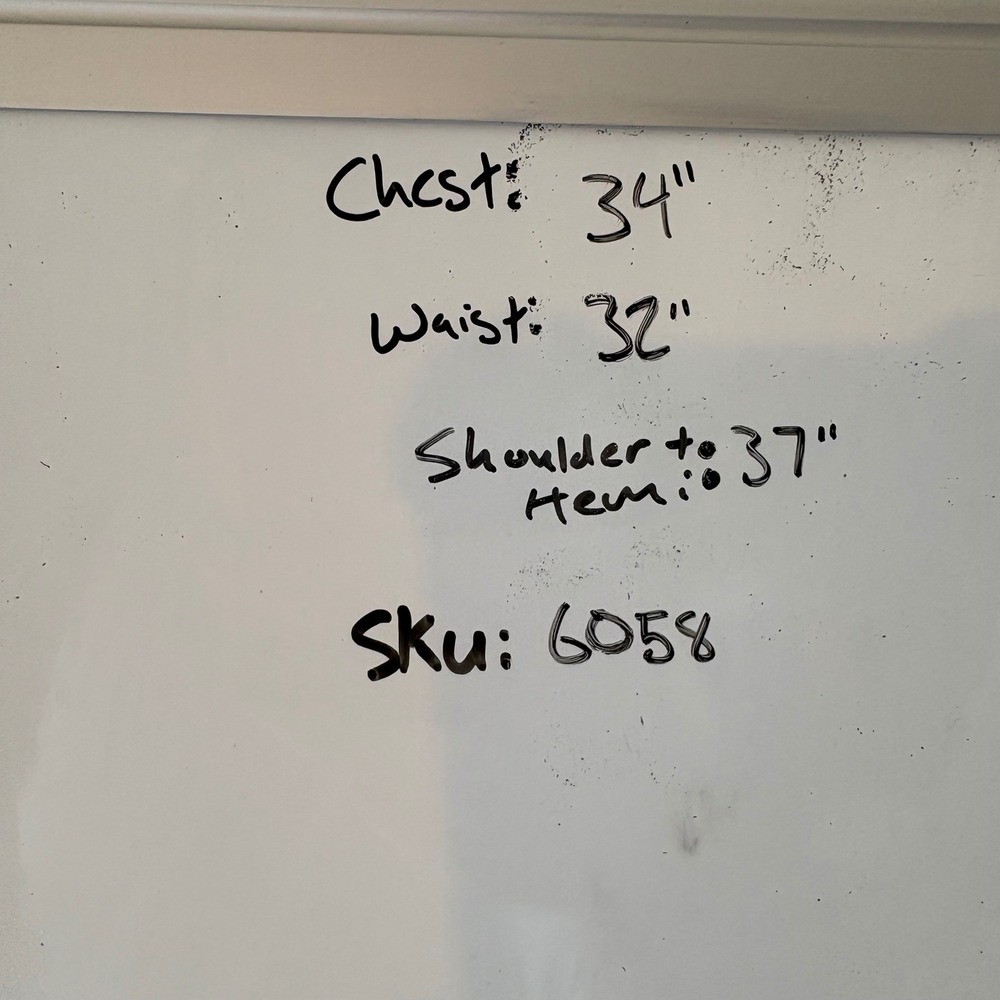 Chest: 34"
Waist: 32"
Shoulder to: 37"
Hem:
SKU: 6058